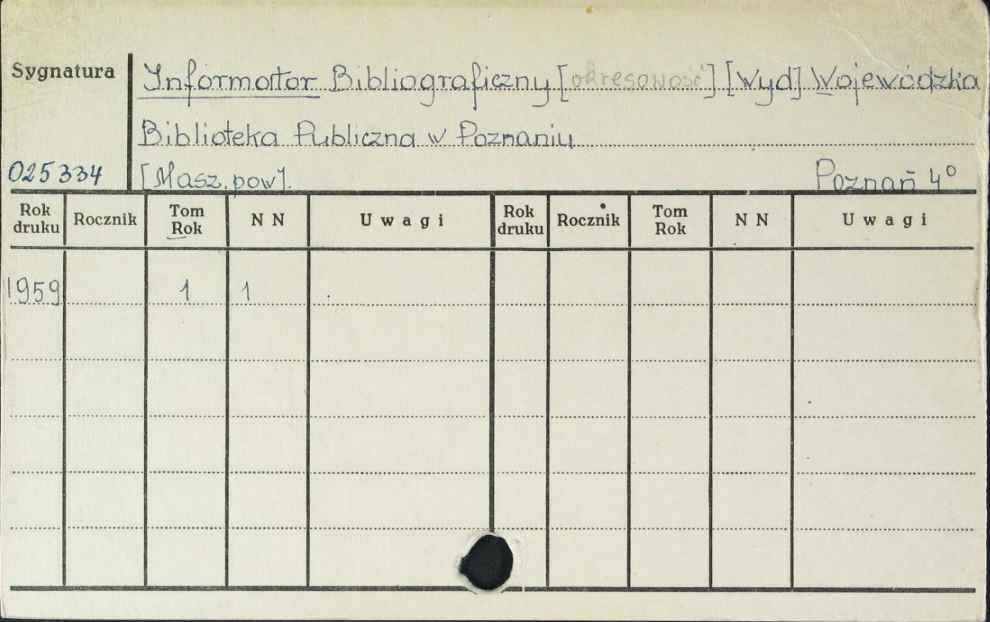 Sygnatura
Informator Bibliograficzny [okresowość] [Wyd] Wojewódzka
Biblioteka Publiczna w Poznaniu
025334 [Masz. pow]. Poznań 4°
Rok druku Rocznik Tom Rok N N Uwagi Rok druku Rocznik Tom Rok N N Uwagi
1959 1 1